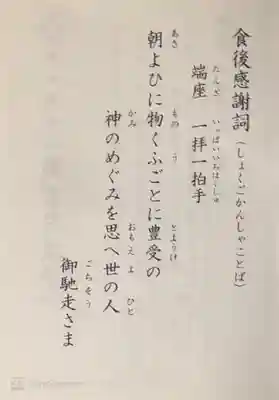 食後感謝詞(しょくごかんしゃことば)
端座 一拝一拍手
たんざ いっぱいいちはくしゅ
朝よひに物くふごとに豊受の
あさ もの う とようけ
神のめぐみを思へ世の人
かみ おもえ よ ひと
御馳走さま
ごちそう